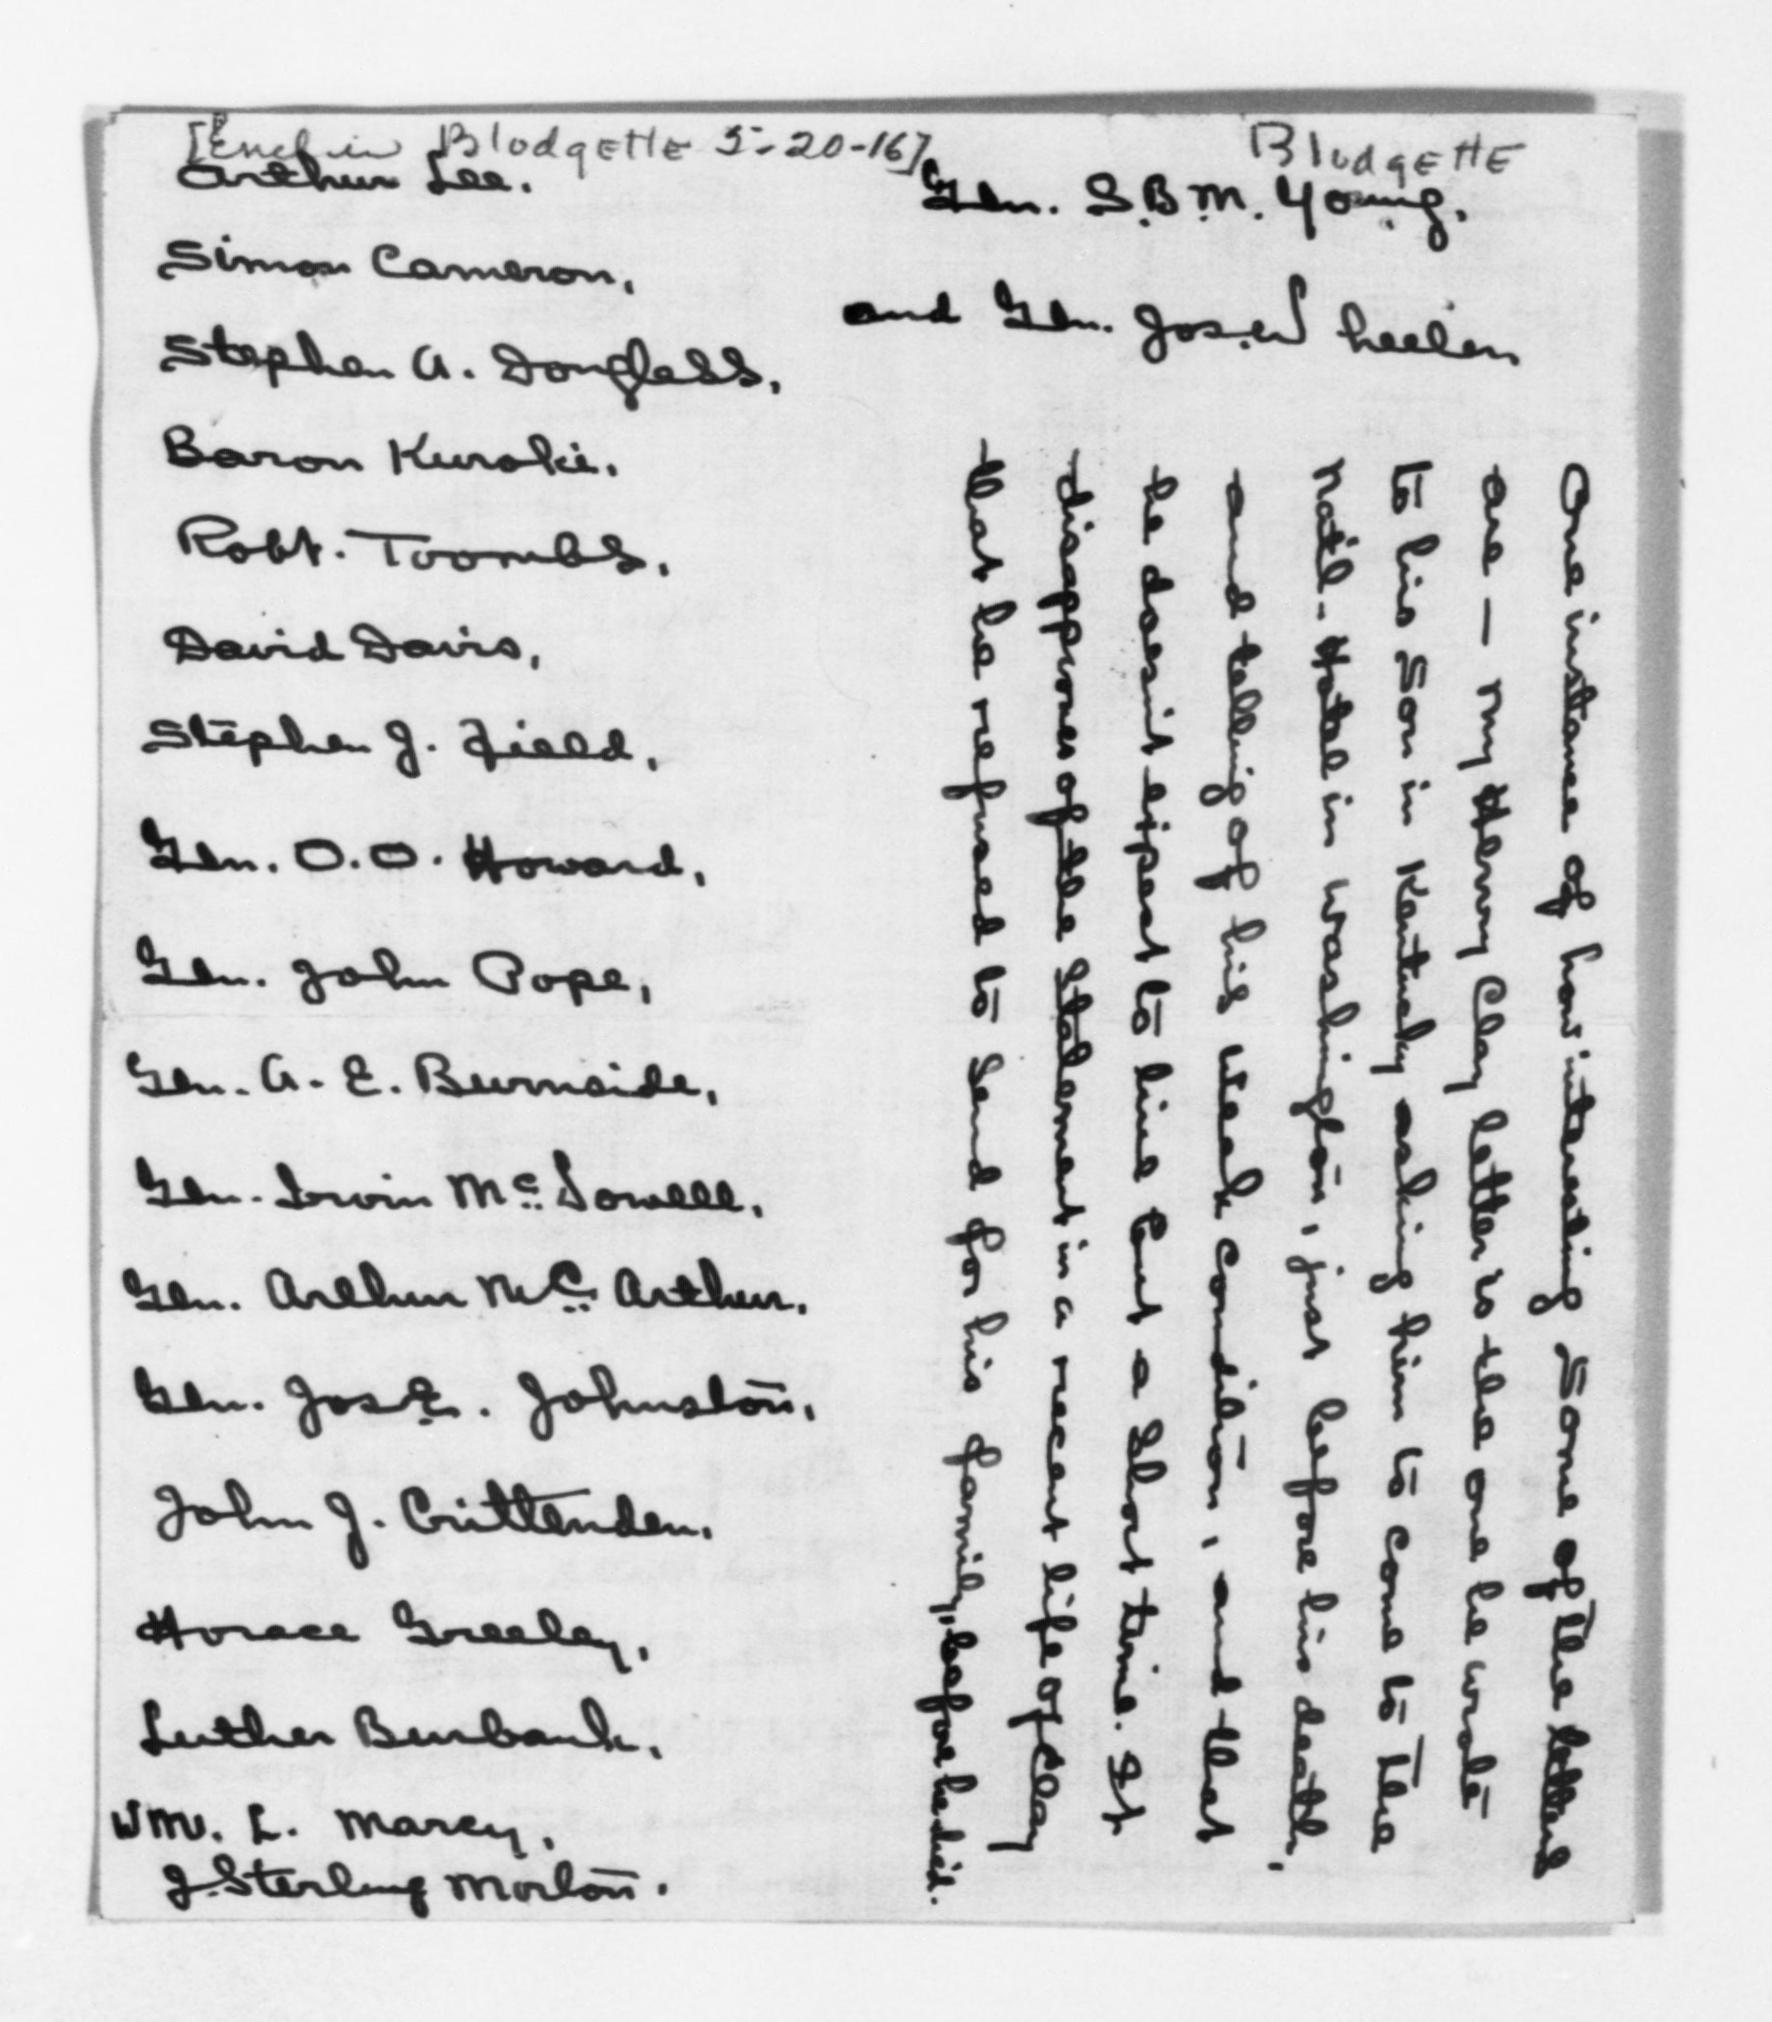 [Encl in Blodgette 5-20-16]
Blodgette
Arthur Lee.
Simon Cameron,
Stephen A. Douglass,
Baron Kuroki,
Robt. Toombs,
David Davis,
Stephen J. Field,
Gen. O.O. Howard,
Gen. John Pope,
Gen. A. E. Burnside,
Gen. Irvin McDowell,
Gen. Arthur McArthur,
Gen. Jos E. Johnston,
John J. Crittenden,
Horace Greeley,
Luther Burbank,
Wm. L. Marcy,
J. Sterling Morton.
Gen. S.B.M. Young,
and Gen. Jos. Wheeler,
One instance of how interesting some of the letters
are — my Henry Clay letter is the one he wrote
to his son in Kentucky asking him to come to the
Nat'l. Hotel in Washington, just before his death,
and telling of his weak condition, and that
he doesnt expect to live but a short time. It
disapproves of the statement in a recent life of Clay
that he refused to send for his family, before he died.